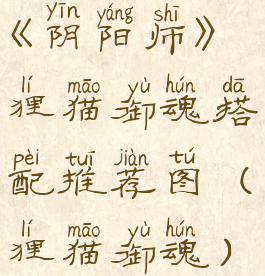 yīn yáng shī
《阴阳师》
lí māo yù hún dā
狸猫御魂搭
pèi tuī jiàn tú
配推荐图（
lí māo yù hún
狸猫御魂）